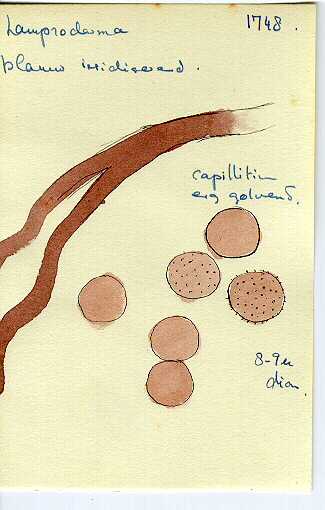 Lamproderma 1748.
blauw iridiserend.
capillitium
erg golvend.
8-9 μ
diam